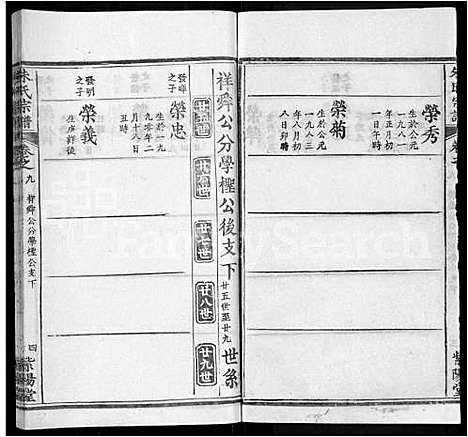 榮秀
生於公元
一九八一
年正月初
一日午時
榮菊
生於公元
一九八三
八日卯時
祥舜公分學極公後支下
廿五世至廿九
世系
廿五世
廿六世
廿七世
廿八世
廿九世
發輝
之子
榮忠
生於一九
九零年二
月十八日
丑時
發明
之子
榮義
生庚詳後
朱氏宗譜
卷之
九
祥舜公分學極公支下
四
紫陽堂
紫陽堂
FamilySearch